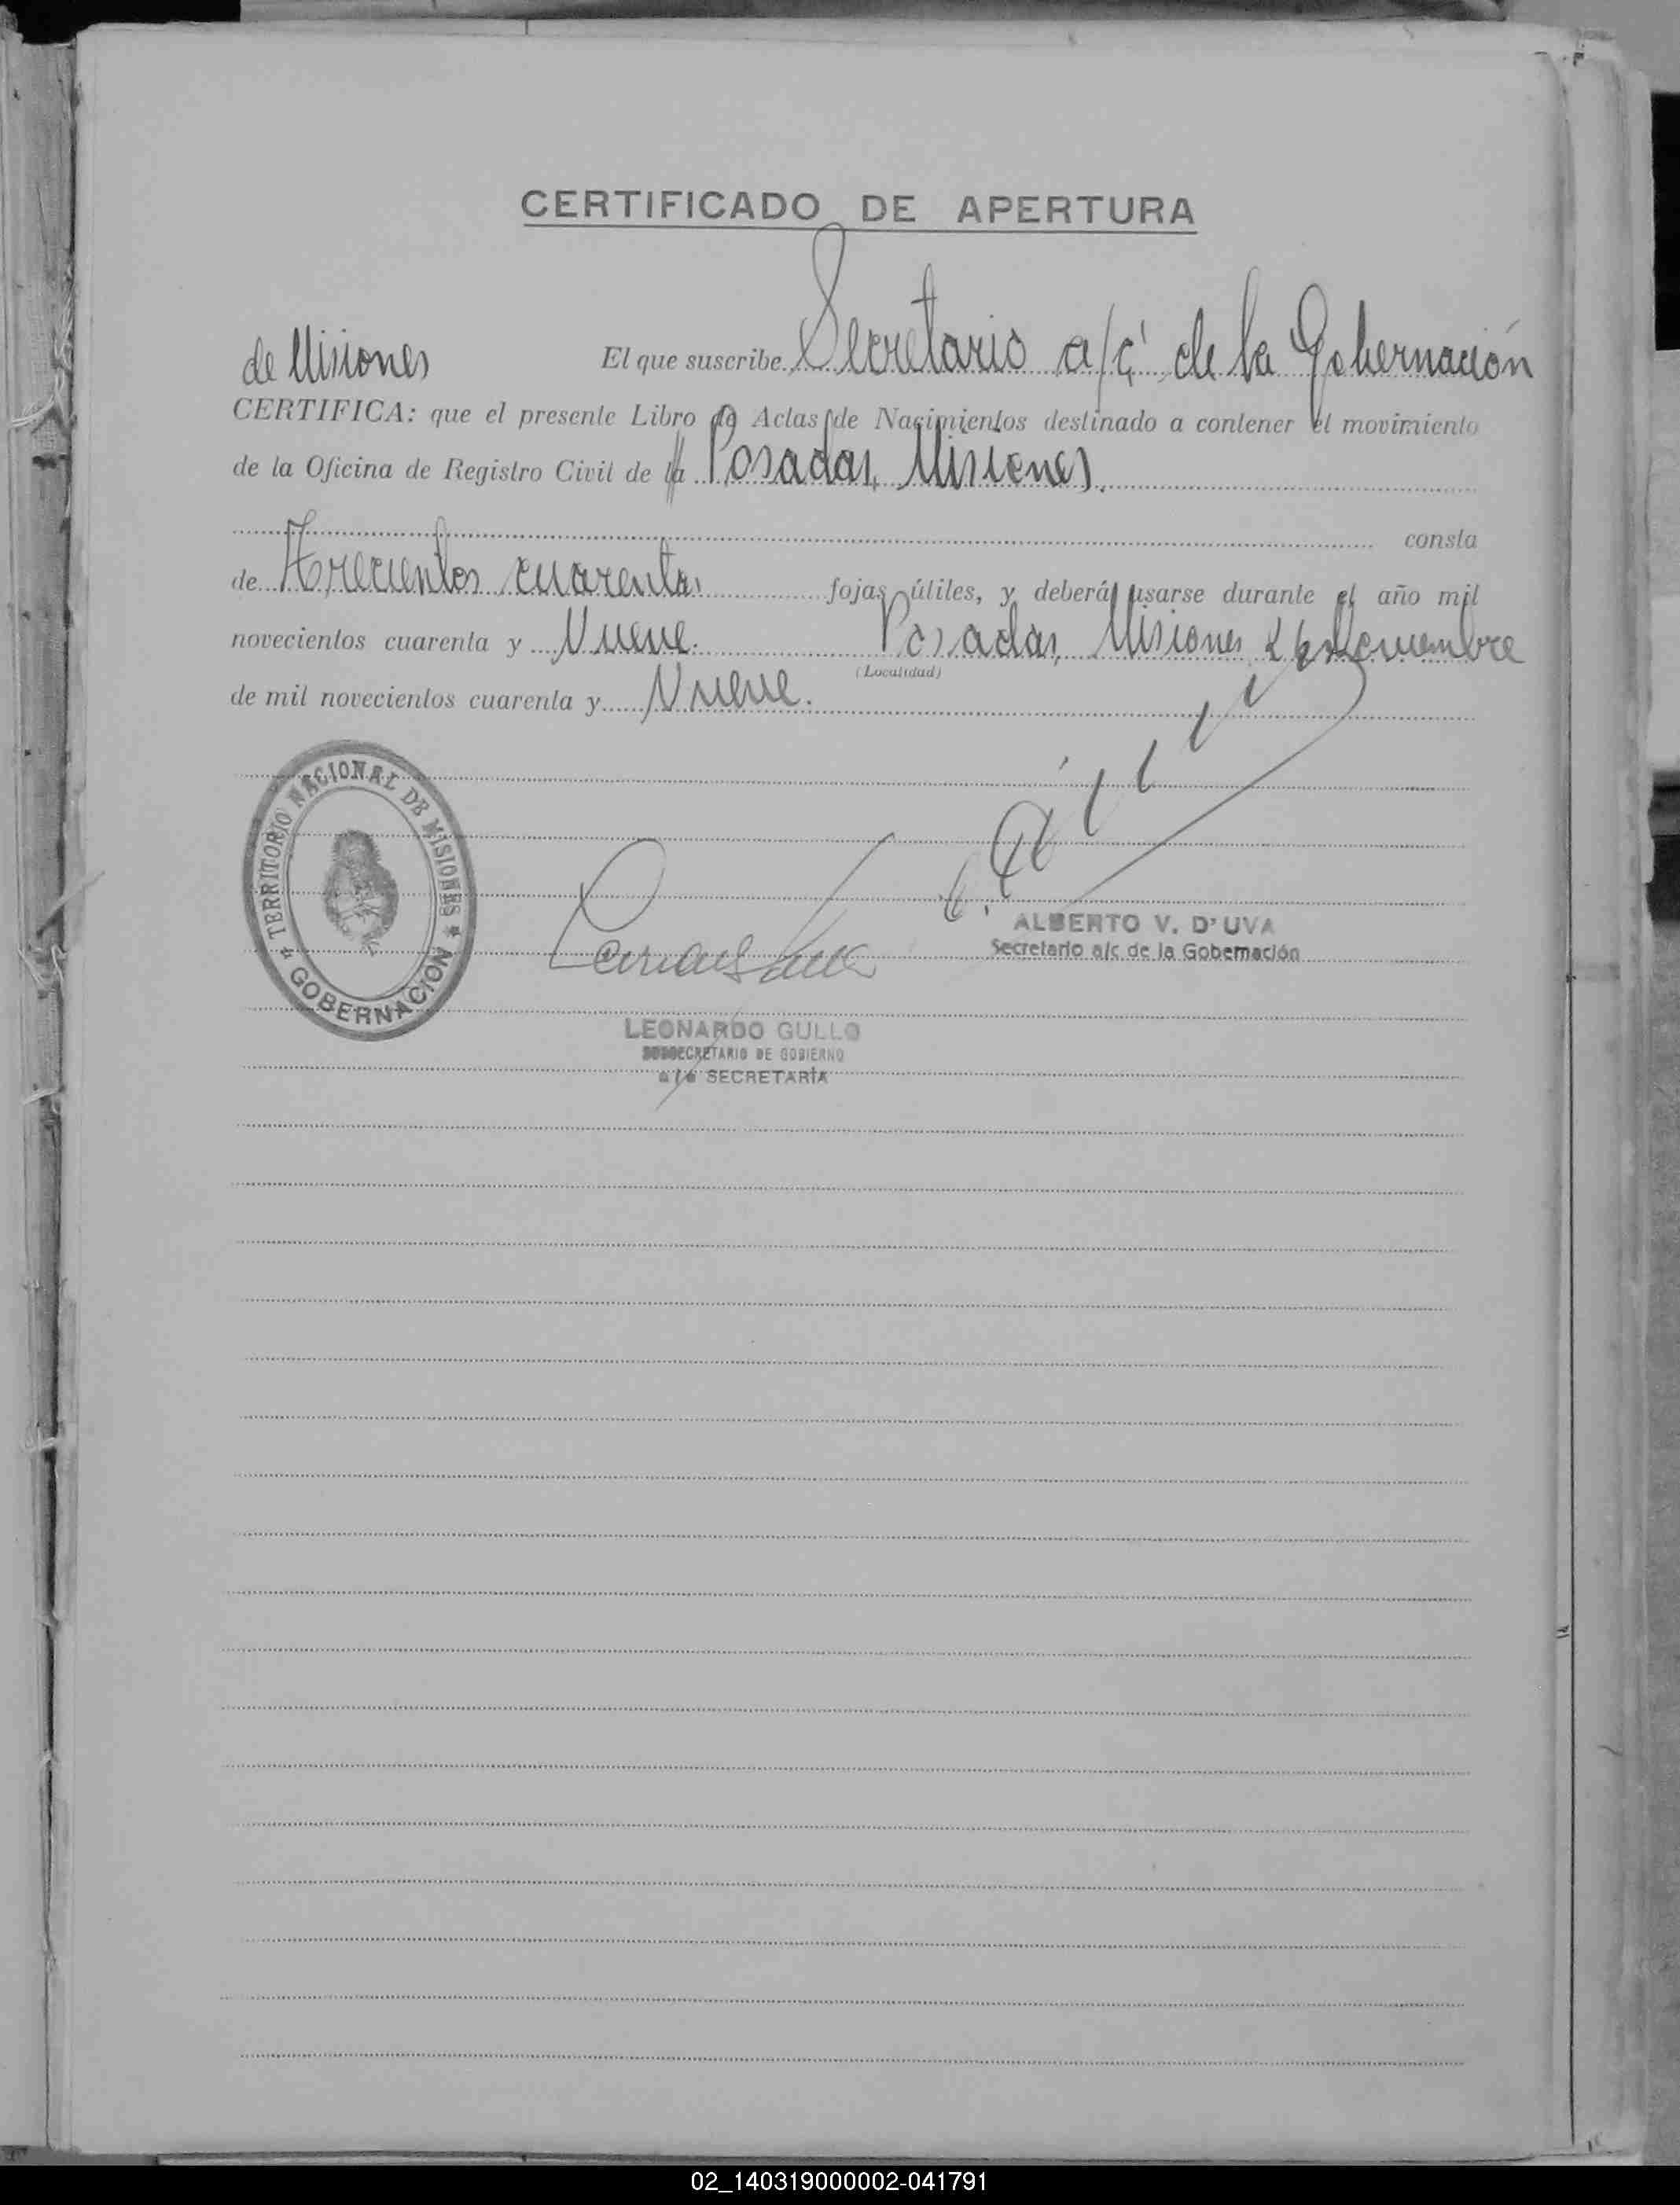 CERTIFICADO DE APERTURA
El que suscribe Secretario a/c de la Gobernación
de Misiones
CERTIFICA: que el presente Libro de Actas de Nacimientos destinado a contener el movimiento
de la Oficina de Registro Civil de la Posadas, Misiones.
consta
de Trecientos cuarenta fojas útiles, y deberá usarse durante el año mil
novecientos cuarenta y Nueve. Posadas, Misiones, 26
(Localidad)
de mil novecientos cuarenta y Nueve.
TERRITORIO NACIONAL DE MISIONES
GOBERNACION
ALBERTO V. D'UVA
Secretario a/c de la Gobernación
LEONARDO GULLO
SUBSECRETARIO DE GOBIERNO
a/c SECRETARÍA
02_140319000002-041791